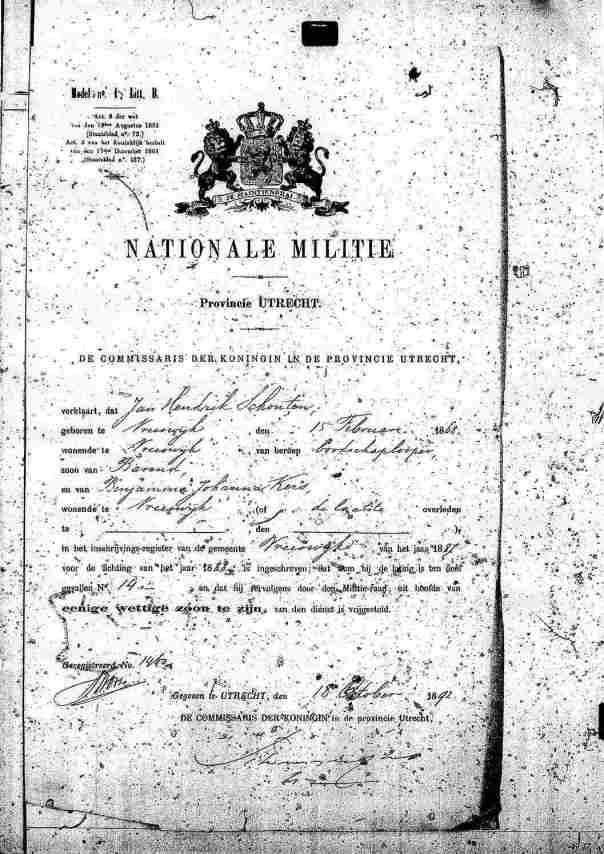 Model n°. 1, Litt. B.
Art. 8 der wet
van den 19den Augustus 1861
(Staatsblad n°. 72.)
Art. 5 van het Koninklijk besluit
van den 17den December 1861
(Staatsblad n°. 127.)
JE MAINTIENDRAI
NATIONALE MILITIE
Provincie UTRECHT.
DE COMMISSARIS DER KONINGIN IN DE PROVINCIE UTRECHT,
verklaart, dat Jan Hendrik Schouten
geboren te Vreeswijk den 15 Februari 1868
wonende te Vreeswijk van beroep boodschaplooper
zoon van Barend
en van Benjamina Johanna
wonende te Vreeswijk (of de laatste overleden
te den ),
in het inschrijvings-register van de gemeente Vreeswijk van het jaar 18
voor de lichting van het jaar 18 is ingeschreven; dat hem bij de loting is ten deel
gevallen N°. 14 en dat hij vervolgens door den Militie-raad, uit hoofde van
eenige wettige zoon te zijn, van den dienst is vrijgesteld.
Geregistreerd No.
Gegeven te UTRECHT, den 18 October 1892
DE COMMISSARIS DER KONINGIN in de provincie Utrecht,